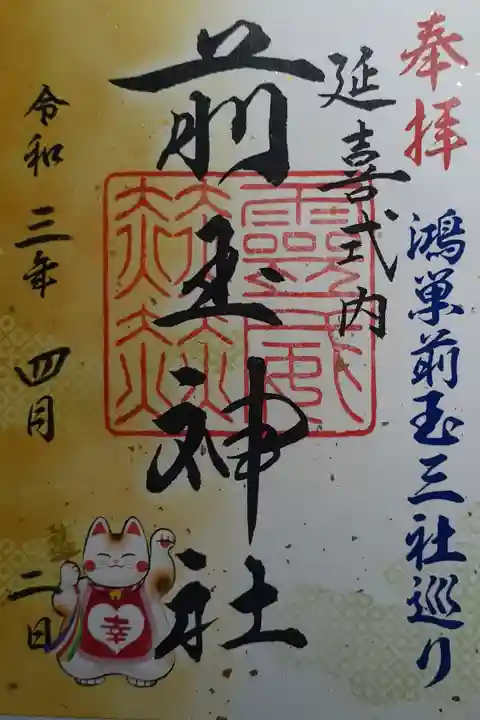 奉拝
鴻巣前玉三社巡り
延喜式内
前玉神社
霊威
赫赫
令和三年四月二日
幸